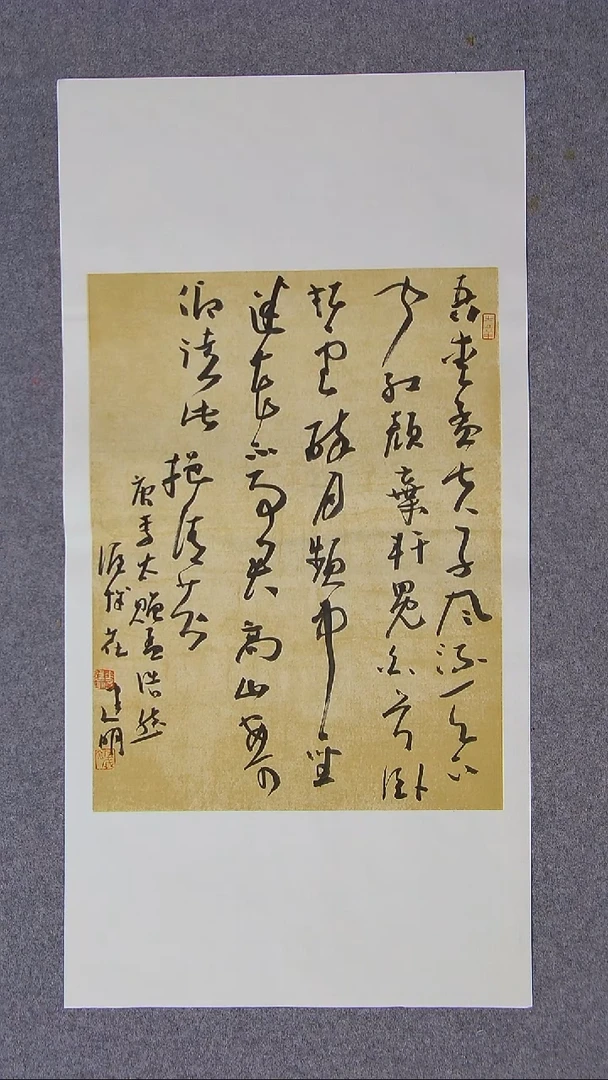 吾爱孟夫子风流天下
闻红颜弃轩冕白首卧
松云醉月频中圣
迷花不事君高山安可
仰徒此挹清芬
唐李太赠孟浩然